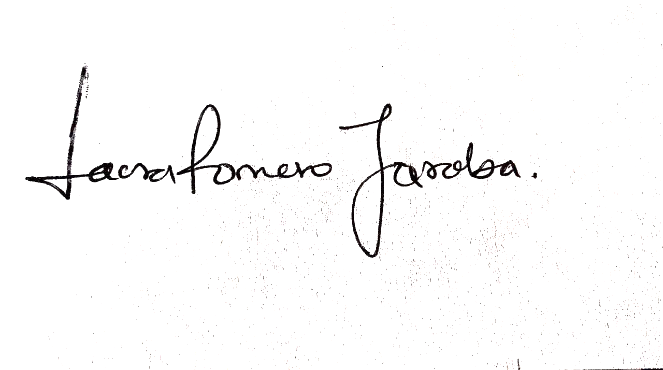 Laura Romero Jaroba.